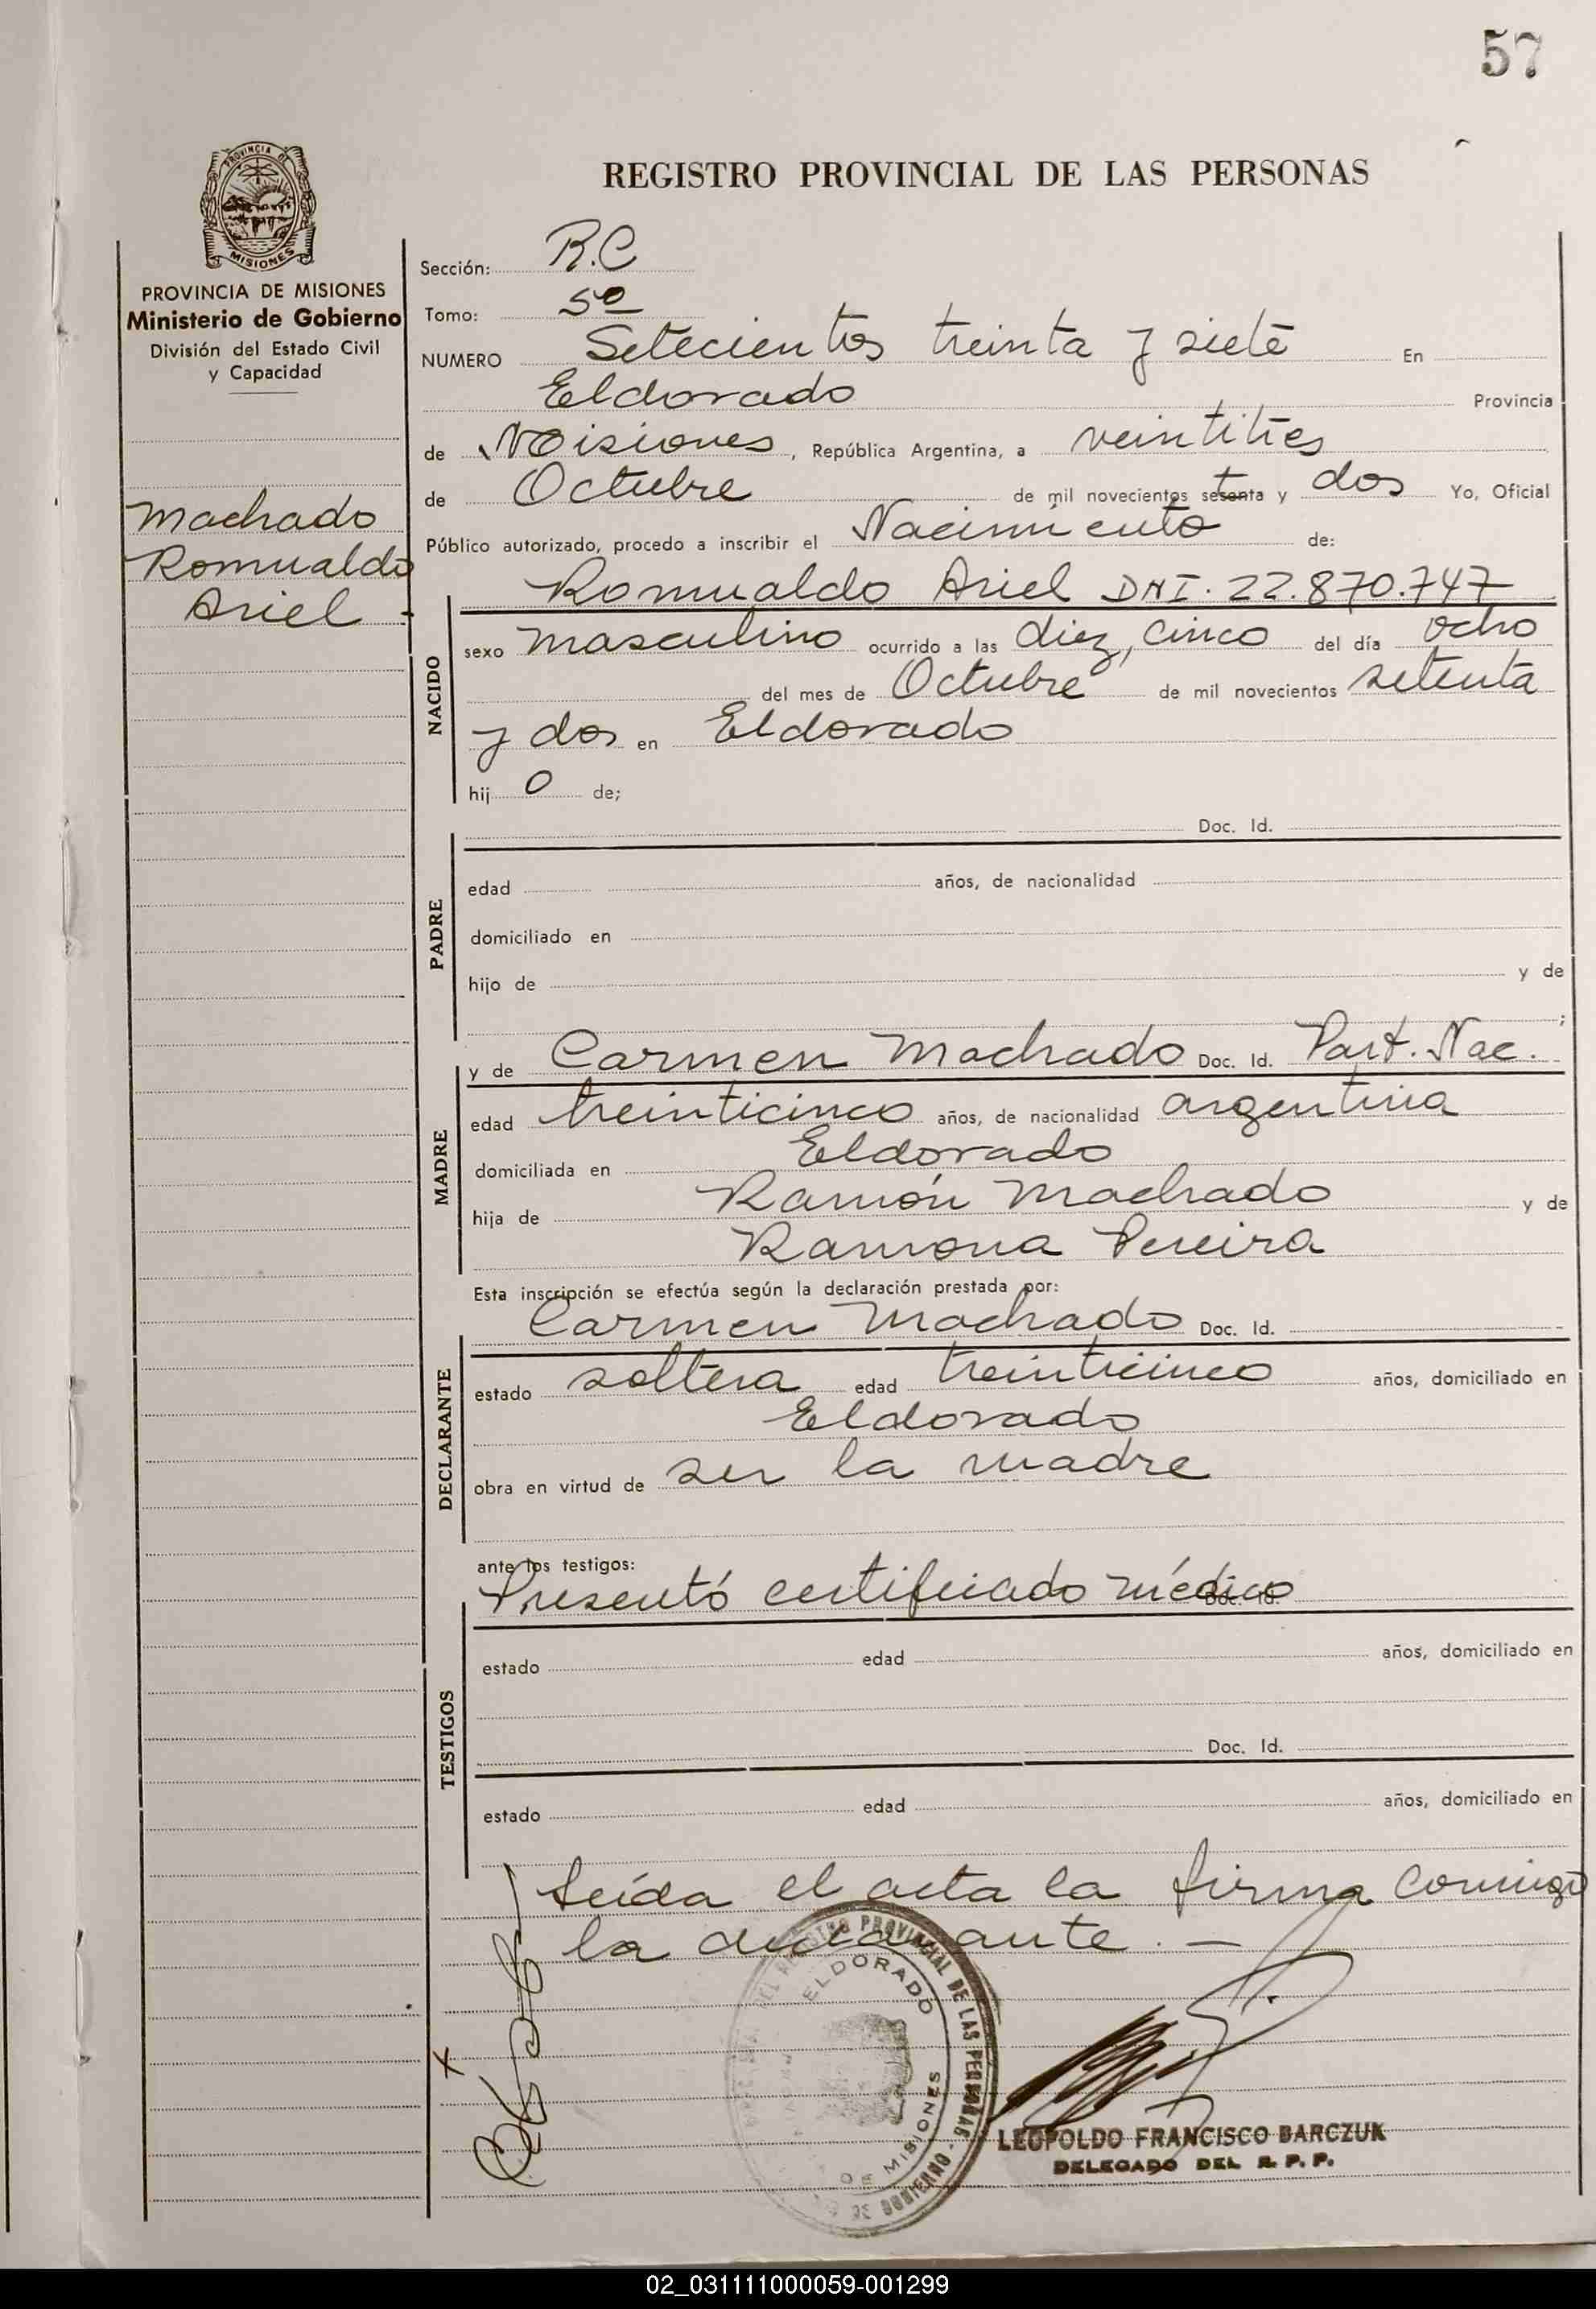 57
REGISTRO PROVINCIAL DE LAS PERSONAS
PROVINCIA DE MISIONES
Ministerio de Gobierno
División del Estado Civil
y Capacidad
Machado
Romualdo
Ariel.-
Sección: R.C
Tomo: 5º
NUMERO Setecientos treinta y siete En
Eldorado Provincia
de Misiones, República Argentina, a veintitres
de Octubre de mil novecientos setenta y dos Yo, Oficial
Público autorizado, procedo a inscribir el Nacimiento de:
NACIDO
Romualdo Ariel DNI. 22.870.747
sexo masculino ocurrido a las diez, cinco del día ocho
del mes de Octubre de mil novecientos setenta
y dos en Eldorado
hij o de;
PADRE
Doc. Id.
edad años, de nacionalidad
domiciliado en
hijo de y de
;
MADRE
y de Carmen Machado Doc. Id. Part. Nac.
edad treinticinco años, de nacionalidad argentina
domiciliada en Eldorado
hija de Ramón Machado y de
Ramona Pereira
Esta inscripción se efectúa según la declaración prestada por:
DECLARANTE
Carmen Machado Doc. Id.
estado soltera edad treinticinco años, domiciliado en
Eldorado
obra en virtud de ser la madre
ante los testigos:
TESTIGOS
Presentó certificado médico Doc. Id.
estado edad años, domiciliado en
Doc. Id.
estado edad años, domiciliado en
Leída el acta la firma conmigo
la declarante.-
DEL REGISTRO PROVINCIAL DE LAS PERSONAS
ELDORADO
MISIONES
LEOPOLDO FRANCISCO BARCZUK
DELEGADO DEL R. P. P.
02_031111000059-001299